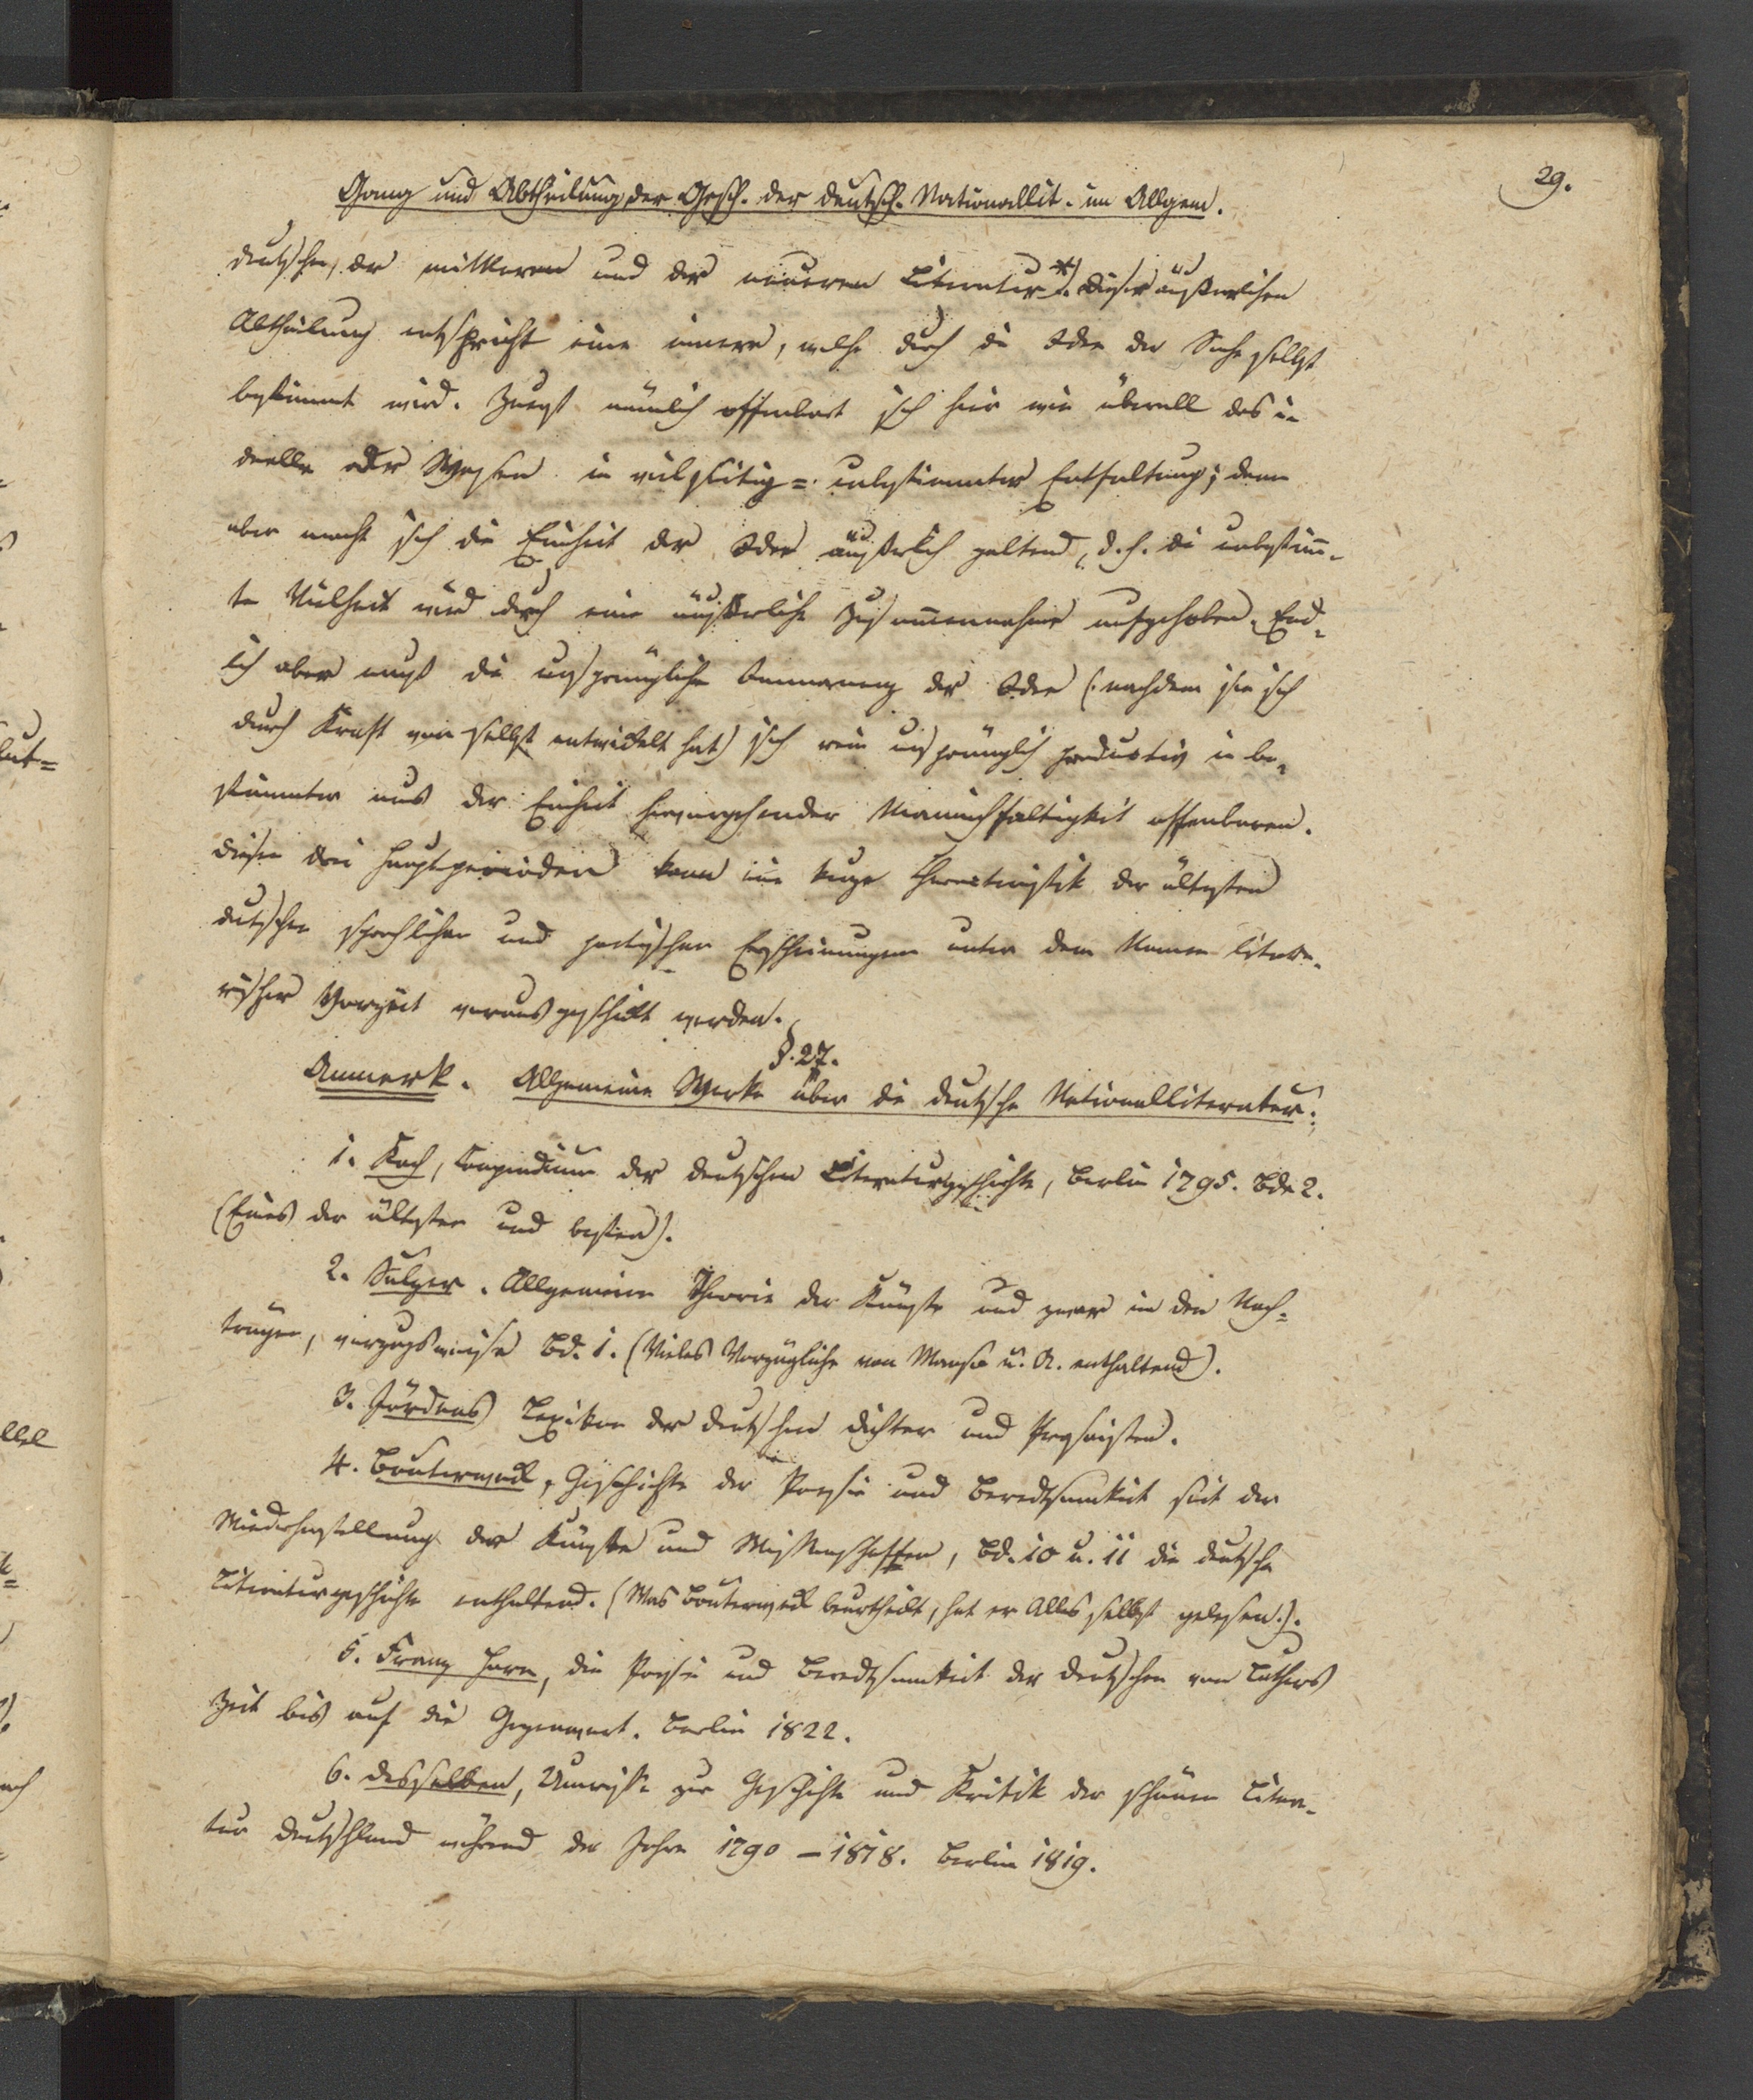 29.
Gang und Abtheilung der Gesch. der deutsch. Nationallit. im Allgem.
deutschen, der mittleren und der neueren Literatur *). Dieser äußerlichen
Abtheilung entspricht eine innere, welche durch die Idee der Sache selbst
bestimmt wird. Zuerst nämlich offenbart sich hier wie überall das i-
deelle oder Wesen in vielseitig = unbestimmter Entfaltung; dann
aber macht sich die Einheit der Idee äußerlich geltend, d. h. die unbestim̅-
te Vielheit wird durch eine äußerliche Zusam̅ennahme aufgehoben. End-
lich aber muß die ursprüngliche der Idee (nachdem sie sich
durch Kraft von selbst entwickelt hat) sich rein ursprünglich productiv in be-
stimmter aus der Einheit hervorgehender Mannichfaltigkeit offenbaren.
Diesen drei Hauptperioden kann eine kurze Charakteristik der ältesten
deutschen sprachlichen und poetischen Erscheinungen unter dem Namen litera-
rischer Vorzeit vorausgeschickt werden.
§. 27.
Anmerk. Allgemeine Werke über die deutsche Nationalliteratur:
1. Koch, Compendium der deutschen Literaturgeschichte, Berlin 1795. Bde 2.
(Eines der ältesten und besten).
2. Sulzer. Allgemeine Theorie der Künste und zwar in den Nach-
trägen, vorzugsweise Bd. 1. (Vieles Vorzügliche von Manso u. A. enthaltend).
3. Jördens Lexikon der deutschen Dichter und Prosaisten.
4. Bouterweck, Geschichte der Poesie und Beredtsamkeit seit der
Wiederherstellung der Künste und Wissenschaften, Bd. 10 u. 11 die deutsche
Literaturgeschichte enthaltend. (Was Bouterweck beurtheilt, hat er Alles selbst gelesen.).
5. Franz Horn, die Poesie und Beredtsamkeit der Deutschen von Luthers
Zeit bis auf die Gegenwart. Berlin 1822.
6. desselben, Umrisse zur Geschichte und Kritik der schönen Litera-
tur Deutschland während der Jahre 1790 – 1818. Berlin 1819.